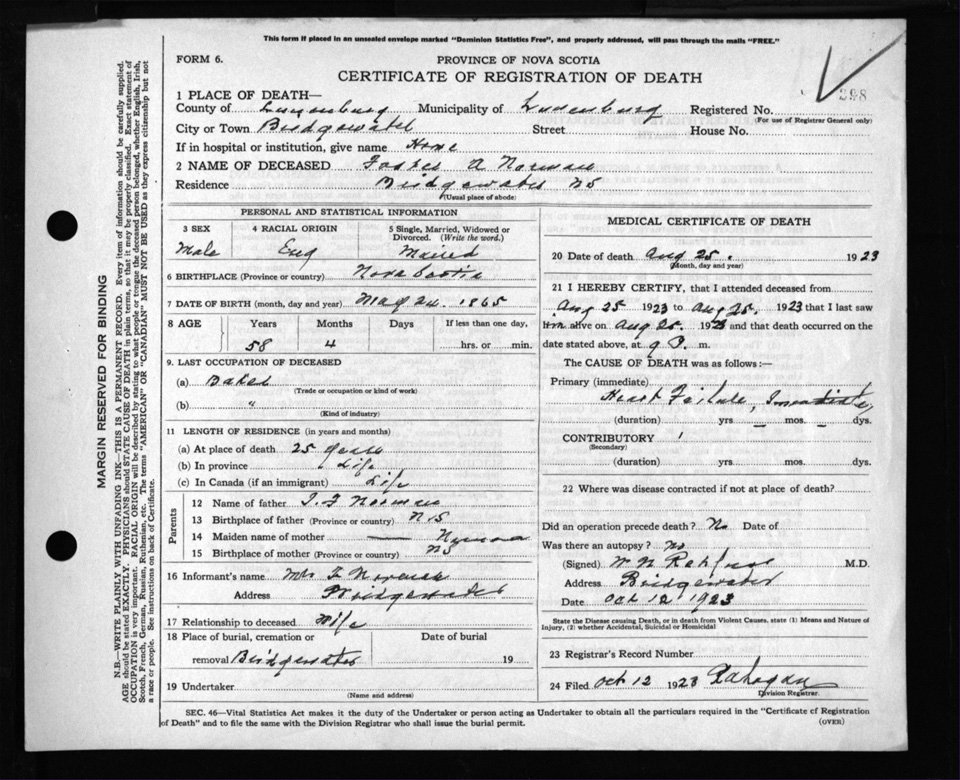 This form if placed in an unsealed envelope marked "Dominion Statistics Free", and properly addressed, will pass through the mails "FREE."
FORM 6.
PROVINCE OF NOVA SCOTIA
CERTIFICATE OF REGISTRATION OF DEATH
398
1 PLACE OF DEATH—
County of Lunenburg Municipality of Lunenburg Registered No.
(For use of Registrar General only)
City or Town Bridgewater Street House No.
If in hospital or institution, give name Home
2 NAME OF DECEASED Foster A Norman
Residence Bridgewater NS
(Usual place of abode)
PERSONAL AND STATISTICAL INFORMATION
3 SEX 4 RACIAL ORIGIN 5 Single, Married, Widowed or Divorced. (Write the word.)
Male Eng Married
6 BIRTHPLACE (Province or country) Nova Scotia
7 DATE OF BIRTH (month, day and year) May 24. 1865
8 AGE Years Months Days If less than one day,
58 4 hrs. or min.
9. LAST OCCUPATION OF DECEASED
(a) Baker
(Trade or occupation or kind of work)
(b) "
(Kind of industry)
11 LENGTH OF RESIDENCE (in years and months)
(a) At place of death 25 years
(b) In province Life
(c) In Canada (if an immigrant) Life
Parents
12 Name of father Norman
13 Birthplace of father (Province or country) NS
14 Maiden name of mother —
15 Birthplace of mother (Province or country) NS
16 Informant's name Mrs F Norman
Address Bridgewater
17 Relationship to deceased Wife
18 Place of burial, cremation or Date of burial
removal Bridgewater 19
19 Undertaker
(Name and address)
MEDICAL CERTIFICATE OF DEATH
20 Date of death Aug 25. 1923
(Month, day and year)
21 I HEREBY CERTIFY, that I attended deceased from
Aug 25 1923 to Aug 25, 1923 that I last saw
him alive on Aug 25. 1923 and that death occurred on the
date stated above, at 9 P. m.
The CAUSE OF DEATH was as follows:—
Primary (immediate)
Heart Failure, Immediate
(duration) yrs — mos. — dys.
CONTRIBUTORY
(Secondary)
(duration) yrs. mos. dys.
22 Where was disease contracted if not at place of death?
Did an operation precede death? No Date of
Was there an autopsy? No
(Signed) W N Rehfuss M.D.
Address Bridgewater
Date Oct 12 1923
State the Disease causing Death, or in death from Violent Causes, state (1) Means and Nature of
Injury, (2) whether Accidental, Suicidal or Homicidal
23 Registrar's Record Number
24 Filed Oct 12 1923
Division Registrar.
SEC. 46—Vital Statistics Act makes it the duty of the Undertaker or person acting as Undertaker to obtain all the particulars required in the "Certificate of Registration
of Death" and to file the same with the Division Registrar who shall issue the burial permit.
(OVER)
MARGIN RESERVED FOR BINDING
N.B.—WRITE PLAINLY WITH UNFADING INK—THIS IS A PERMANENT RECORD. Every item of information should be carefully supplied.
AGE should be stated EXACTLY. PHYSICIANS should STATE CAUSE OF DEATH in plain terms, so that it may be properly classified. Exact statement of
OCCUPATION is very important. RACIAL ORIGIN will be described by stating to what people or tongue the deceased person belonged, whether English, Irish,
Scotch, French, German, Russian, Ruthenian, etc. The terms "AMERICAN" or "CANADIAN" MUST NOT BE USED as they express citizenship but not
a race or people. See instructions on back of Certificate.